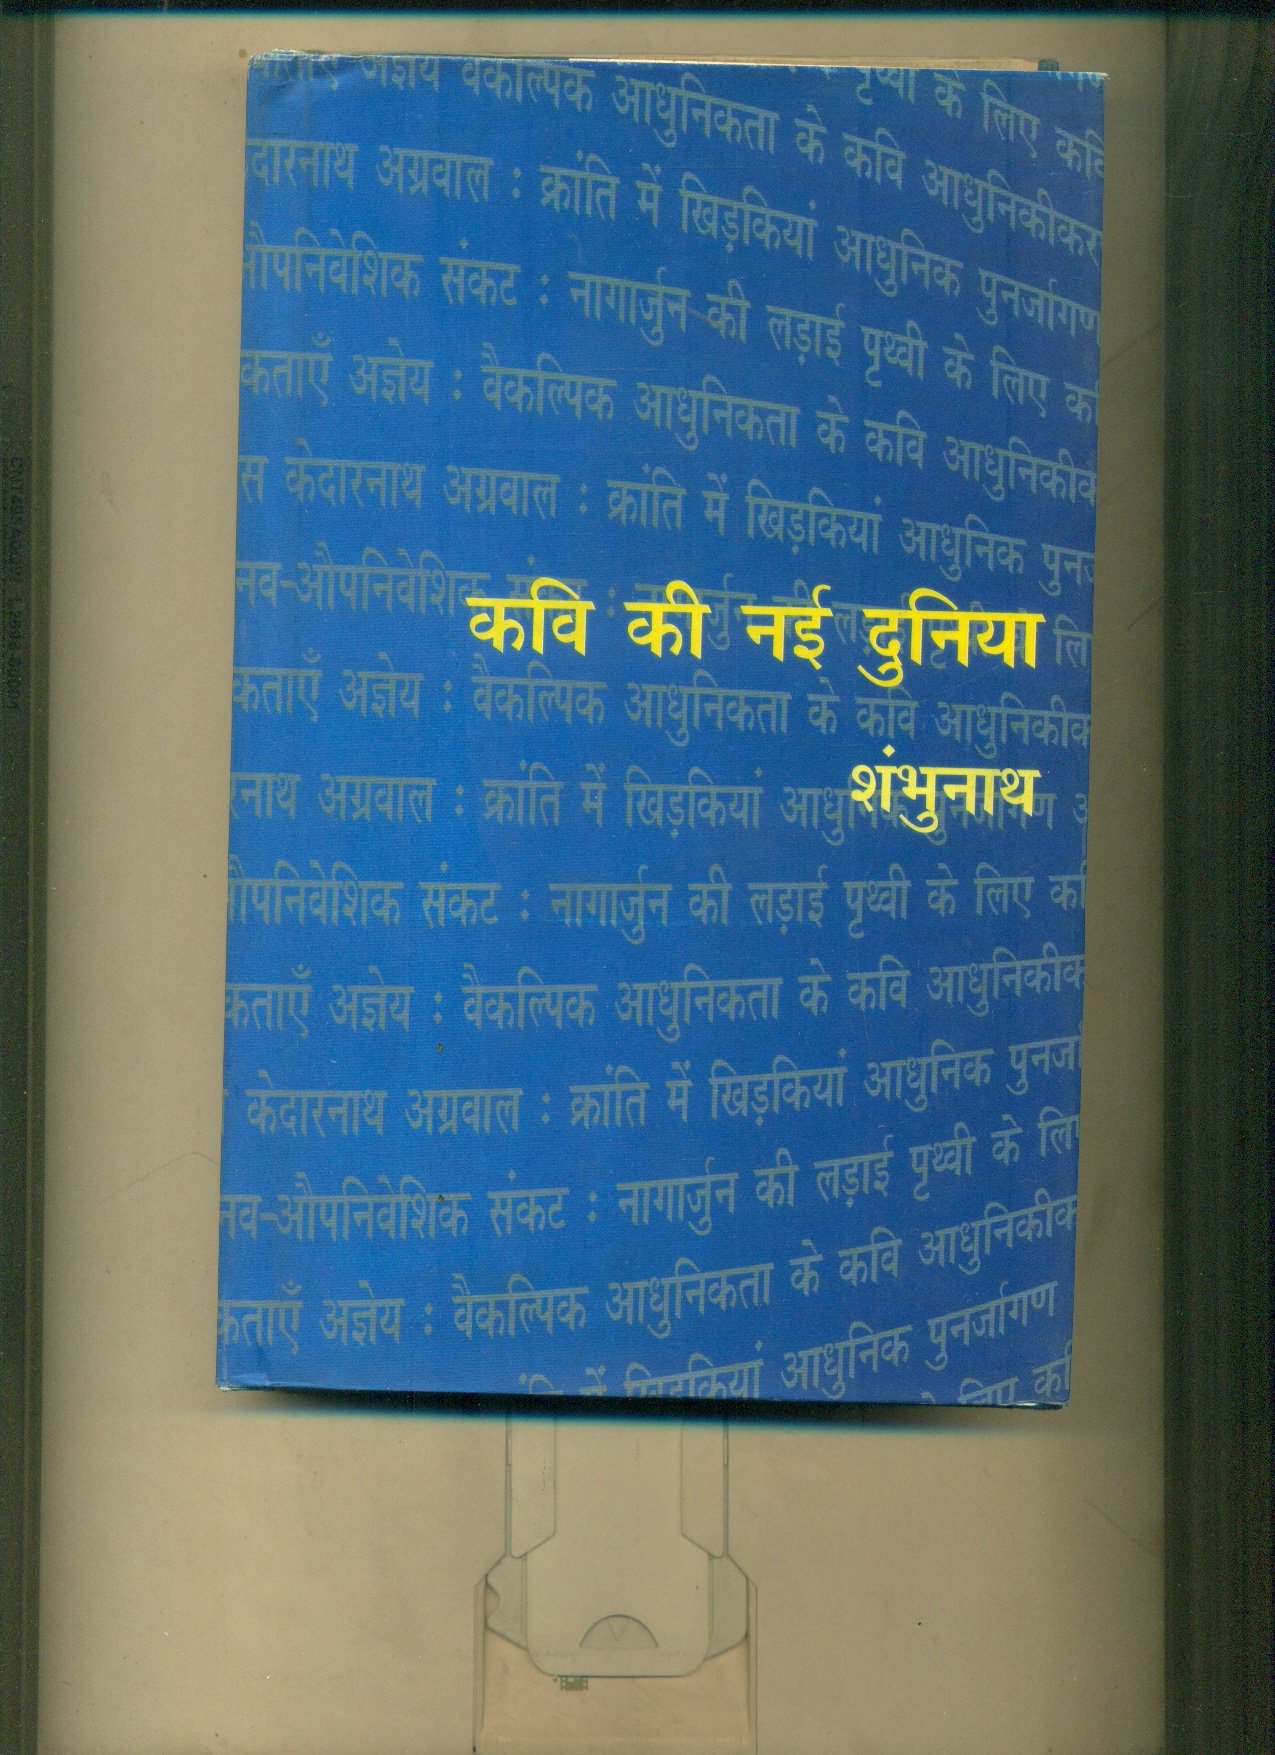 अज्ञेय वैकल्पिक आधुनिकता के कवि आधुनिकीकर
पृथ्वी के लिए कवि
दारनाथ अग्रवाल : क्रांति में खिड़कियां आधुनिक पुनर्जागण
औपनिवेशिक संकट : नागार्जुन की लड़ाई पृथ्वी के लिए क
कताएँ अज्ञेय : वैकल्पिक आधुनिकता के कवि आधुनिकीक
स केदारनाथ अग्रवाल : क्रांति में खिड़कियां आधुनिक पुन
नव-औपनिवेशिक
कवि की नई दुनिया
कताएँ अज्ञेय : वैकल्पिक आधुनिकता के कवि आधुनिकीक
शंभुनाथ
रनाथ अग्रवाल : क्रांति में खिड़कियां
औपनिवेशिक संकट : नागार्जुन की लड़ाई पृथ्वी के लिए क
कताएँ अज्ञेय : वैकल्पिक आधुनिकता के कवि आधुनिकीक
केदारनाथ अग्रवाल : क्रांति में खिड़कियां आधुनिक पुनर्जा
नव-औपनिवेशिक संकट : नागार्जुन की लड़ाई पृथ्वी के लि
कताएँ अज्ञेय : वैकल्पिक आधुनिकता के कवि आधुनिकीक
में खिड़कियां आधुनिक पुनर्जागण
लिए क